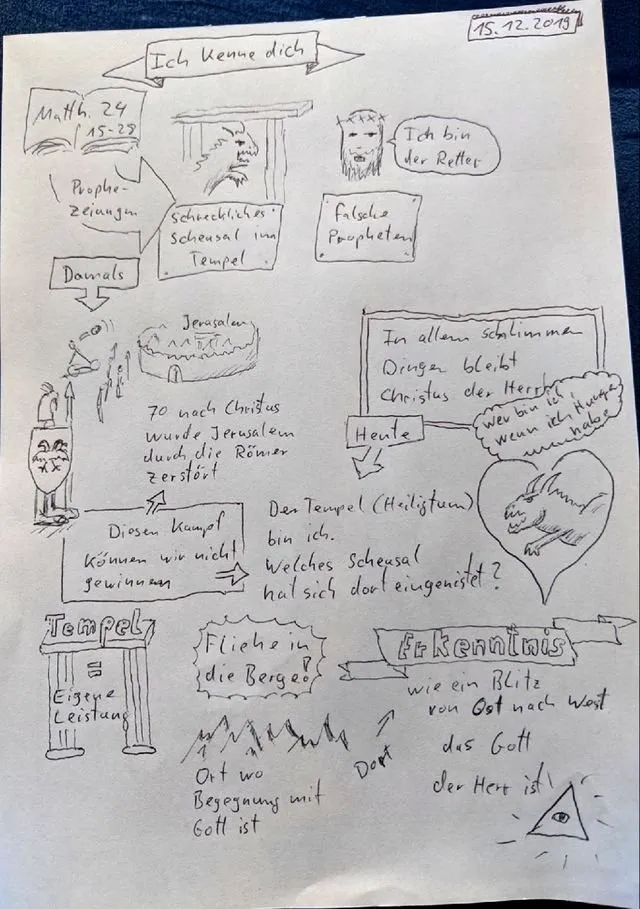 15.12.2019
Ich kenne dich
Matth. 24
15-28
Prophe-
zeiungen
schreckliches
Scheusal im
Tempel
Ich bin
der Retter
falsche
Propheten
Damals
Jerusalem
70 nach Christus
wurde Jerusalem
durch die Römer
zerstört
In allem schlimmen
Dingen bleibt
Christus der Herr!
Heute
wer bin ich,
wenn ich Hunger
habe
Diesen Kampf
können wir nicht
gewinnen
Der Tempel (Heiligtum)
bin ich.
Welches Scheusal
hat sich dort eingenistet?
Tempel
=
Eigene
Leistung
Fliehe in
die Berge!
Ort wo
Begegnung mit
Gott ist
Dort
Erkenntnis
wie ein Blitz
von Ost nach West
das Gott
der Herr ist!